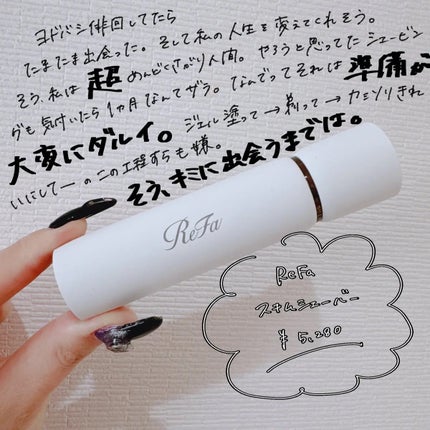 ヨドバシ徘徊してたら
たまたま出会った。そして私の人生を変えてくれそう。
そう、私は超めんどくさがり人間。やろうと思ってたシェービン
グも気付いたら1ヵ月なんてザラ。なんでってそれは準備が
大変にダルイ。ジェル塗って→剃って→カミソリきれ
いにしてーのこの工程すらも嫌。
そう、キミに出会うまでは。
ReFa
ReFa
スキムシェーバー
¥5,280